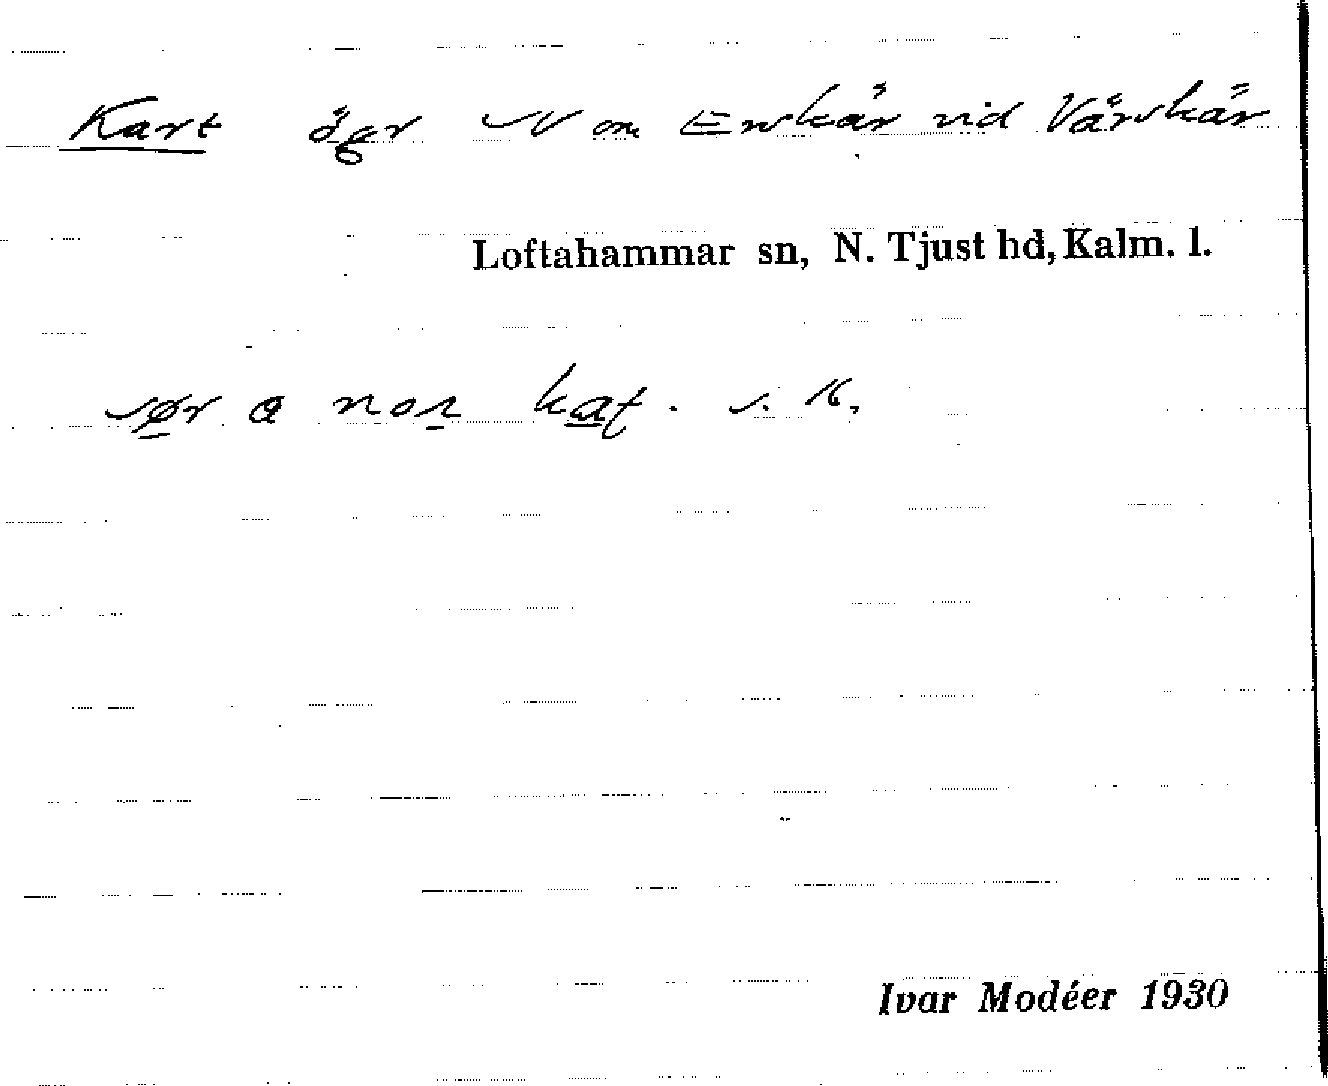 Kart öar N om Enskär vid Vårskär
Loftahammar sn, N. Tjust hd, Kalm. l.
sør a nor kaʈ. s. K.
Ivar Modéer 1930